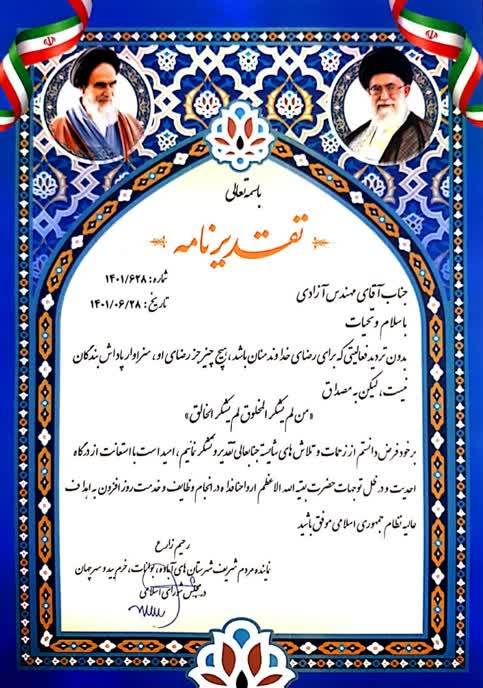 باسمه تعالی
تقدیرنامه
شماره: ۱۴۰۱/۶۲۸
تاریخ: ۱۴۰۱/۰۶/۲۸
جناب آقای مهندس آزادی
با سلام و تحیات
بدون تردید فعالیتی که برای رضای خداوند منان باشد، هیچ چیز جز رضای او، سزاوار پاداش بندگان
نیست، لیکن به مصداق
«من لم یشکر المخلوق لم یشکر الخالق»
بر خود فرض دانستم از زحمات و تلاش های شایسته جنابعالی تقدیر و تشکر نمایم، امید است با استعانت از درگاه
احدیت و در ظل توجهات حضرت بقیه الله الاعظم ارواحنا فداه در انجام وظایف و خدمت روز افزون به اهداف
عالیه نظام جمهوری اسلامی موفق باشید
رحیم زارع
نماینده مردم شریف شهرستان های آباده، بوانات، خرم بید و سرچهان
در مجلس شورای اسلامی